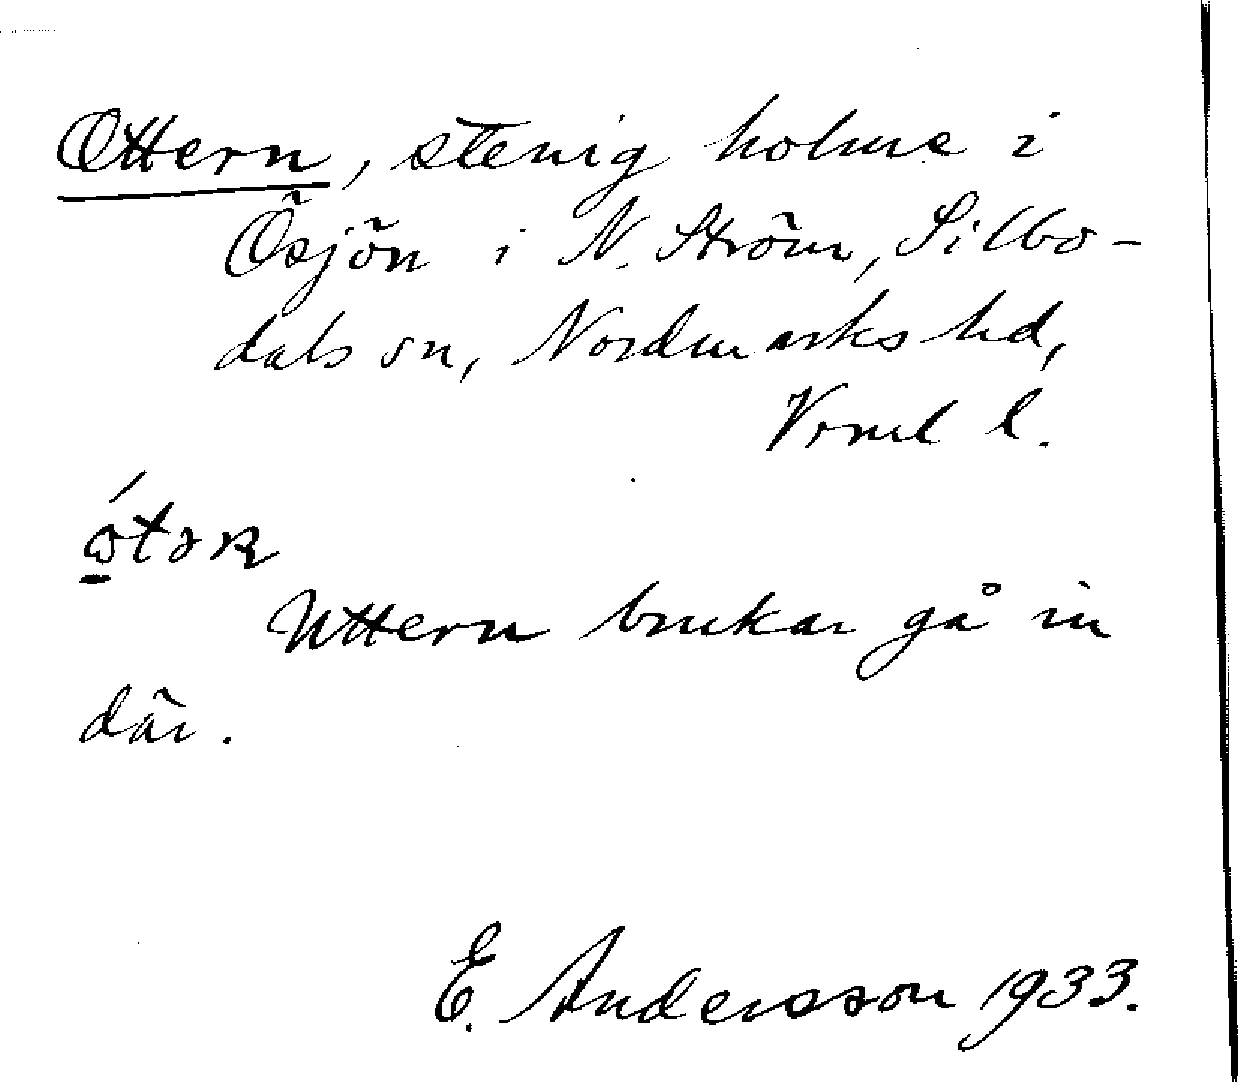 Ottern, stenig holme i
Ösjön i N. Ström, Silbo-
dals sn, Nordmarks hd,
Vrml l.
Uttern brukar gå in
där.
E. Andersson 1933.